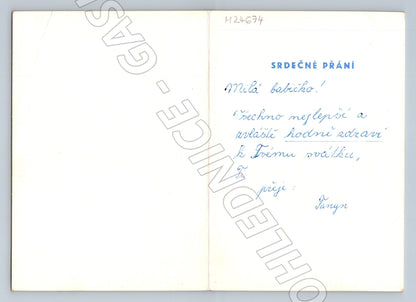 H24674
SRDEČNÉ PŘÁNÍ
Milá babičko!
Všechno nejlepší a
zvláště hodně zdraví
k Tvému svátku,
T
přeje:
OHLEDNICE - GAS